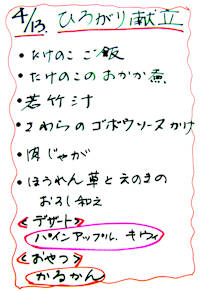 4/13. ひろがり献立
・たけのこご飯
・たけのこのおかか煮
・若竹汁
・さわらのゴボウソースかけ
・肉じゃが
・ほうれん草とえのきの
おろし和え
《デザート》
パインアップル、キウィ
《おやつ》
かるかん